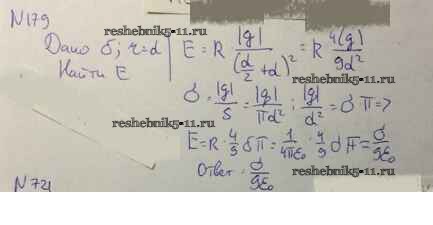 N179
Дано σ; r=d
Найти E
E = k |q| / (d/2 + d)² = k 4|q| / 9d²
σ = |q|/S = |q|/πd² ; |q|/d² = σπ =>
E = k · 4/9 σπ = 1/4πε₀ · 4/9 σπ = σ/9ε₀
Ответ: σ/9ε₀
N721
reshebnik5-11.ru
reshebnik5-11.ru
reshebnik5-11.ru
reshebnik5-11.ru
reshebnik5-11.ru